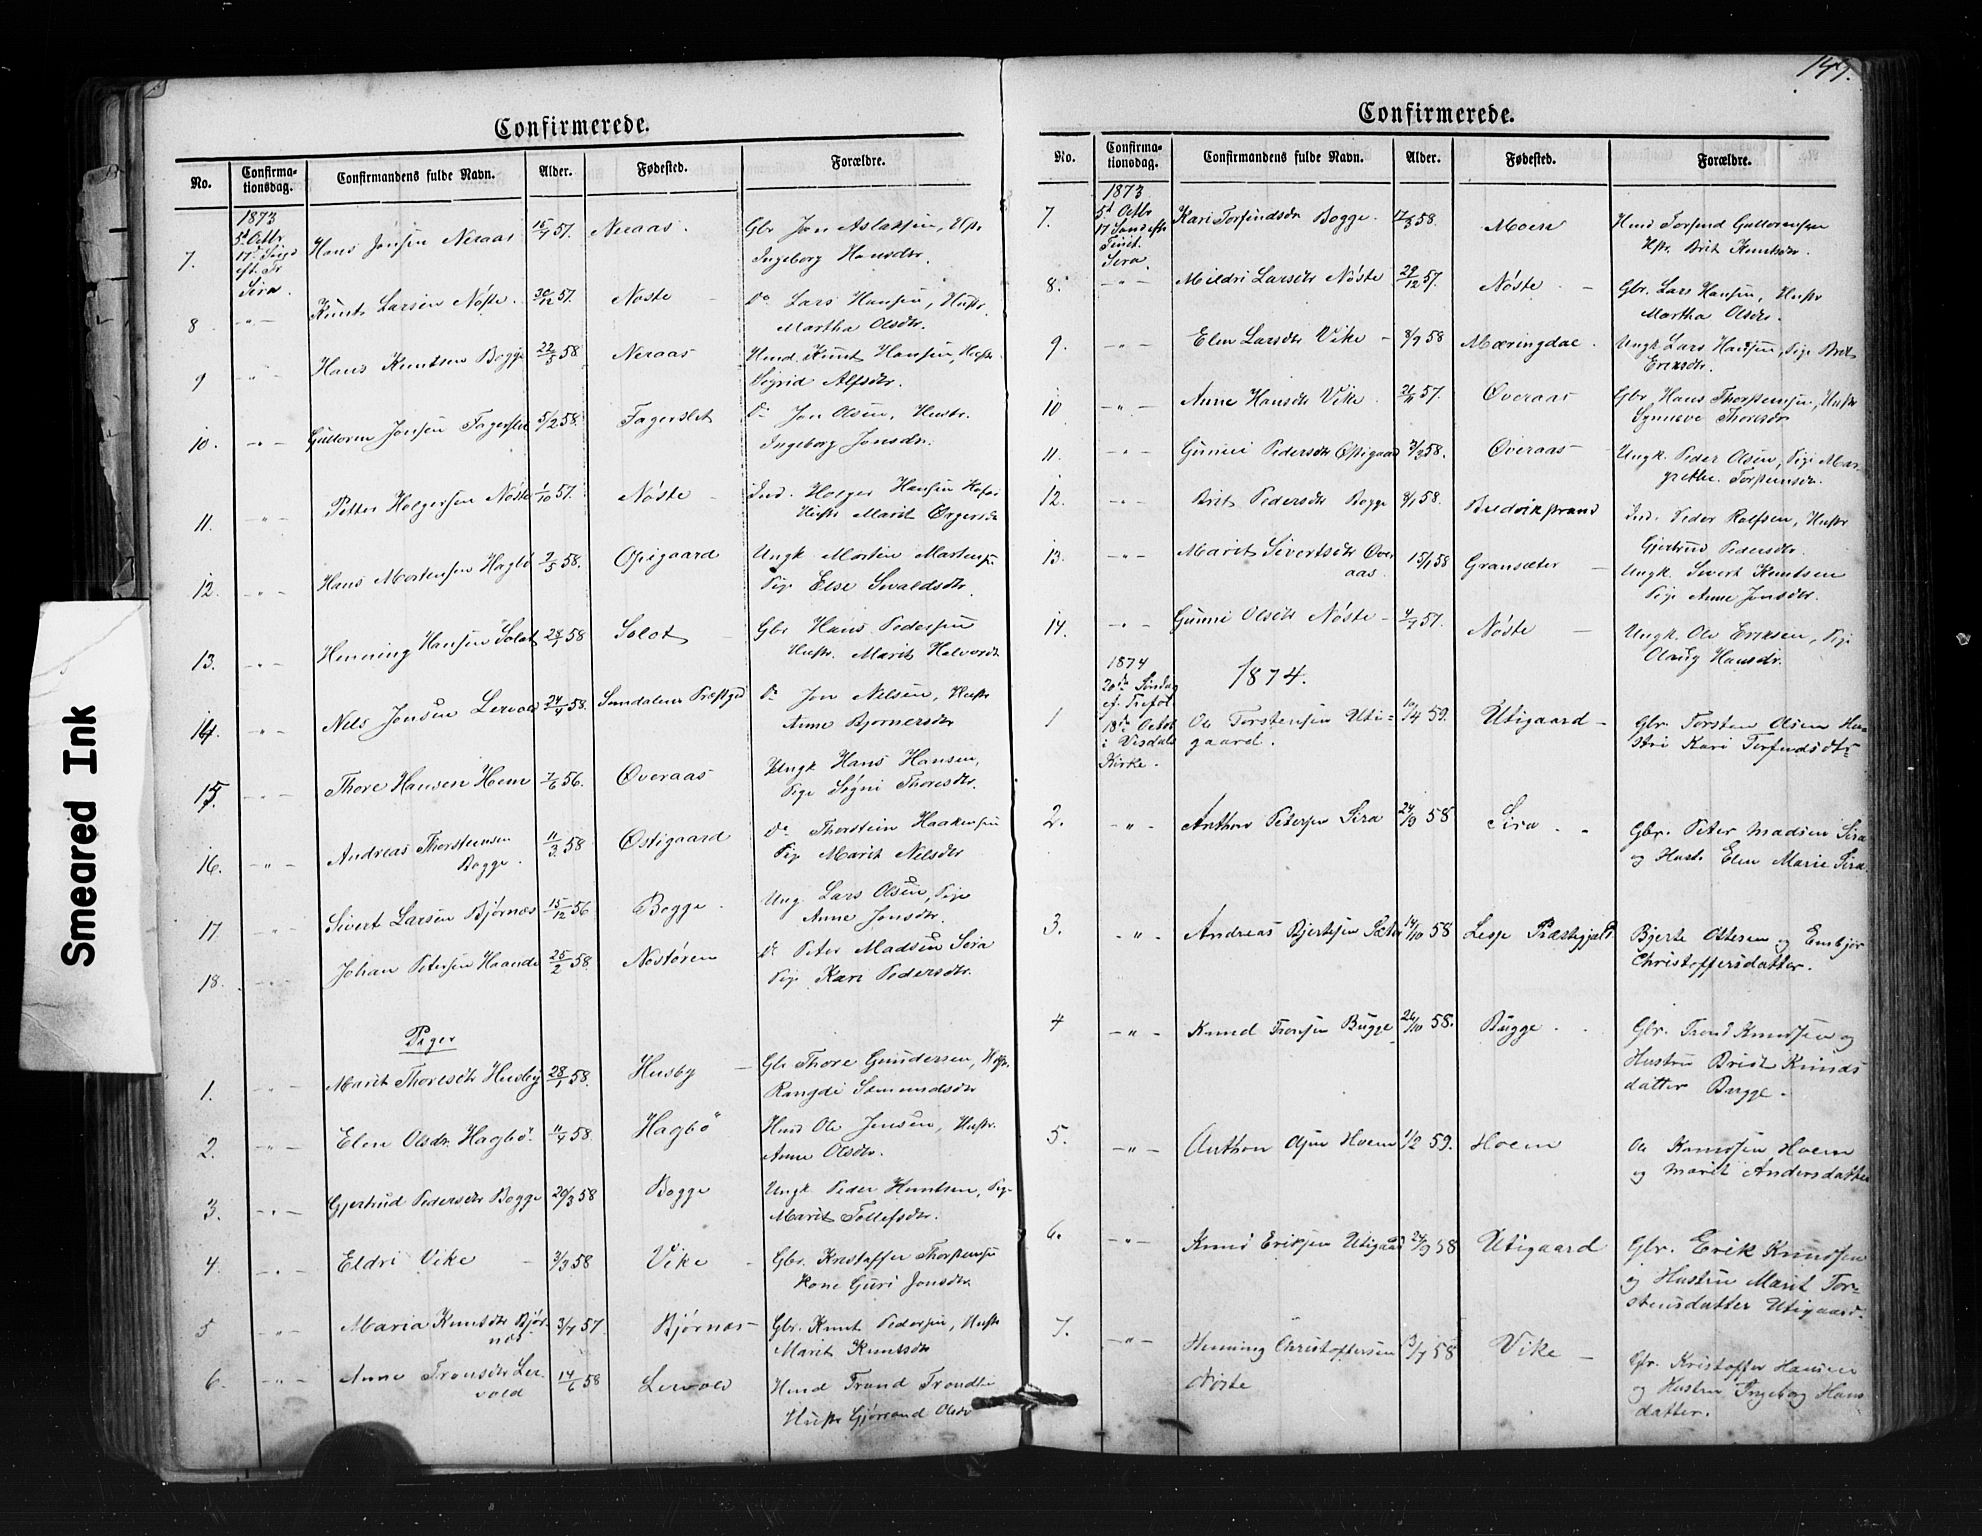 149.
Confirmerede.
No.
Confirma-
tionsdag.
Confirmandens fulde Navn.
Alder.
Fødested.
Forældre.
1873
5t Octbr
17d Sønd
eft. Tr
Sira.
7. Hans Jonsen Neraas 15/7 57. Neraas. Gbr Jon Aslaksen, Hstr
Ingeborg Hansdtr.
8 -"- Knut Larsen Nøste. 30/12 57. Nøste - Do Lars Hansen, Hustr.
Martha Olsdtr.
9 -"- Hans Knutsen Bogge 22/5 58. Neraas Husd. Knut Hansen, Hustr
Sigrid Alfsdtr.
10. -"- Guttorm Jonsen Fagerslet 5/2 58. Fagerslet Do Jon Olsen, Hustr.
Ingeborg Jonsdtr.
11. -"- Petter Holgersen Nøste 1/10 57. Nøste - Ind. Holger Hansen
Hustr Marit
12. -"- Hans Mortensen Hagbø 2/5 58. Opigaard Ungk Morten Mortensen
Pige Else Sivaldsdtr.
13. -"- Henning Hansen Solot 28/1 58 Solot - Gbr Hans Pedersen
Hustr. Marit Halvordtr
14. -"- Nels Jonsen Lervold 24/4 58. Sundalens Præstgd Do Jon Nelsen, Hustr
Anne Bjørnersdtr
15. -"- Thore Hansen Hoem 2/6 56. Øveraas Ungk Hans Hansen,
Pige Søgni Thoresdtr.
16. -"- Andreas Thorstensen
Bogge. 11/3. 58 Østigaard Do Thorstein Haakensen
Pige Marit Nelsdtr
17. -"- Sivert Larsen Bjørnæs 15/12 56 Bogge. Ung. Lars Olsen, Pige
Anne Jonsdtr.
18. -"- Johan Petersen Haande 25/2 58. Nøstøren Do Peter Madsen Sira
Pige Kari Pedersdtr.
Piger
1. -"- Marit Thoresdtr Husby 28/1 58. Husby - Gbr Thore Gundersen, Hustr.
Rangdi Semundsdtr
2. -"- Elen Olsdtr Hagbø. 11/4 58. Hagbø Husd Ole Jensen, Hustr.
Anne Olsdtr.
3. -"- Gjertrud Pedersdtr Bogge 20/3 58 Bogge Ungk Peder Knutsen, Pige
Marit Tollefsdtr.
4 -"- Eldri Vike - 3/9 58 Vike - Gbr. Kristoffer Thorstensen
Kone Guri Jonsdtr.
5 -"- Maria Knutsdtr Bjør-
næs 3/7 57 Bjørnæs - Gbr. Knut Pedersen, Hustr
Marit Knutsdtr
6. -"- Anne Tronsdtr Ler-
vold 14/6 58 Lervold Husd Trond Trondsen
Hustr Gjørrand Olsdtr
Confirmerede.
No.
Confirma-
tionsdag.
Confirmandens fulde Navn.
Alder.
Fødested.
Forældre.
1873
5t Octbr
17 Sønd eftr
Trinit.
Sira.
7. Kari Torfindsdtr Bogge. 17/3 58. Moen Husd Torfind Guttormsen
Hstr. Brit Knutsdtr.
8. -"- Mildri Larsdtr Nøste 29/12 57. Nøste - Gbr. Lars Hansen, Hustr
Martha Olsdtr.
9. -"- Elen Larsdtr Vike - 8/9 58 Mæringdal. Ungk Lars Hansen, Pige Brit
Eriksdtr.
10 -"- Anne Hansdtr Vike. 21/11 57. Øveraas Gbr, Hans Thorstensen, Hustr
Synneve Thoresdtr
11. -"- Gunnei Pedersdtr Opigaard 3/3 58. Øveraas - Ungk. Peder Olsen, Pige Mar-
grethe. Torstensdtr.
12. -"- Brit Pedersdtr Bogge 8/1 58. Bredvikstrand Ind. Peder Rolfsen, Hustr
Gjertrud Pedersdtr.
13. -"- Marit Sivertsdtr Over
aas. 15/1 58 Gransæter - Ungk. Sivert Knutsen
Pige Anne Jonsdtr.
14. -"- Gunni Olsdtr Nøste - 4/7 57. Nøste - Ungk. Ole Eriksen, Pige
Olaug Hansdtr.
1874
20de Søndag
ef. Trefol.
18de Octob
i Visdals
Kirke.
1874.
1 Ole Torstensen Uti-
gaard. 10/4 59. Utigaard - Gbr. Torsten Olsen Hu-
stru Kari Torfindsdtr
2. -"- Anthon Petersen Sira 24/9 58 Sira. Gbr. Peter Madsen Sira
og Hust. Elen Marie Sira
3. -"- Andreas Bjertesen Sæter 14/10 58 Lesje Præstegjæld Bjerte Ottesen og Embjør
Christoffersdatter.
4 -"- Knud Tronsen Bugge 26/10 58. Bugge. Gbr. Trond Knudsen og
Hustru Brit Knuds
datter Bugge.
5. -"- Anthon Olsen Hoem 1/2 59. Hoem Ole Knudsen Hoem
og Marit Andersdatter
6. -"- Knud Eriksen Utigaard 24/9 58 Utigaard Gbr. Erik Knudsen
og Hustru Marit Tor-
stensdatter Utigaard.
7. -"- Henning Christoffersen
Nøste 13/7 58 Vike - Gbr. Kristoffer Hansen
og Hustru Ingeborg Hans
datter.
Smeared Ink